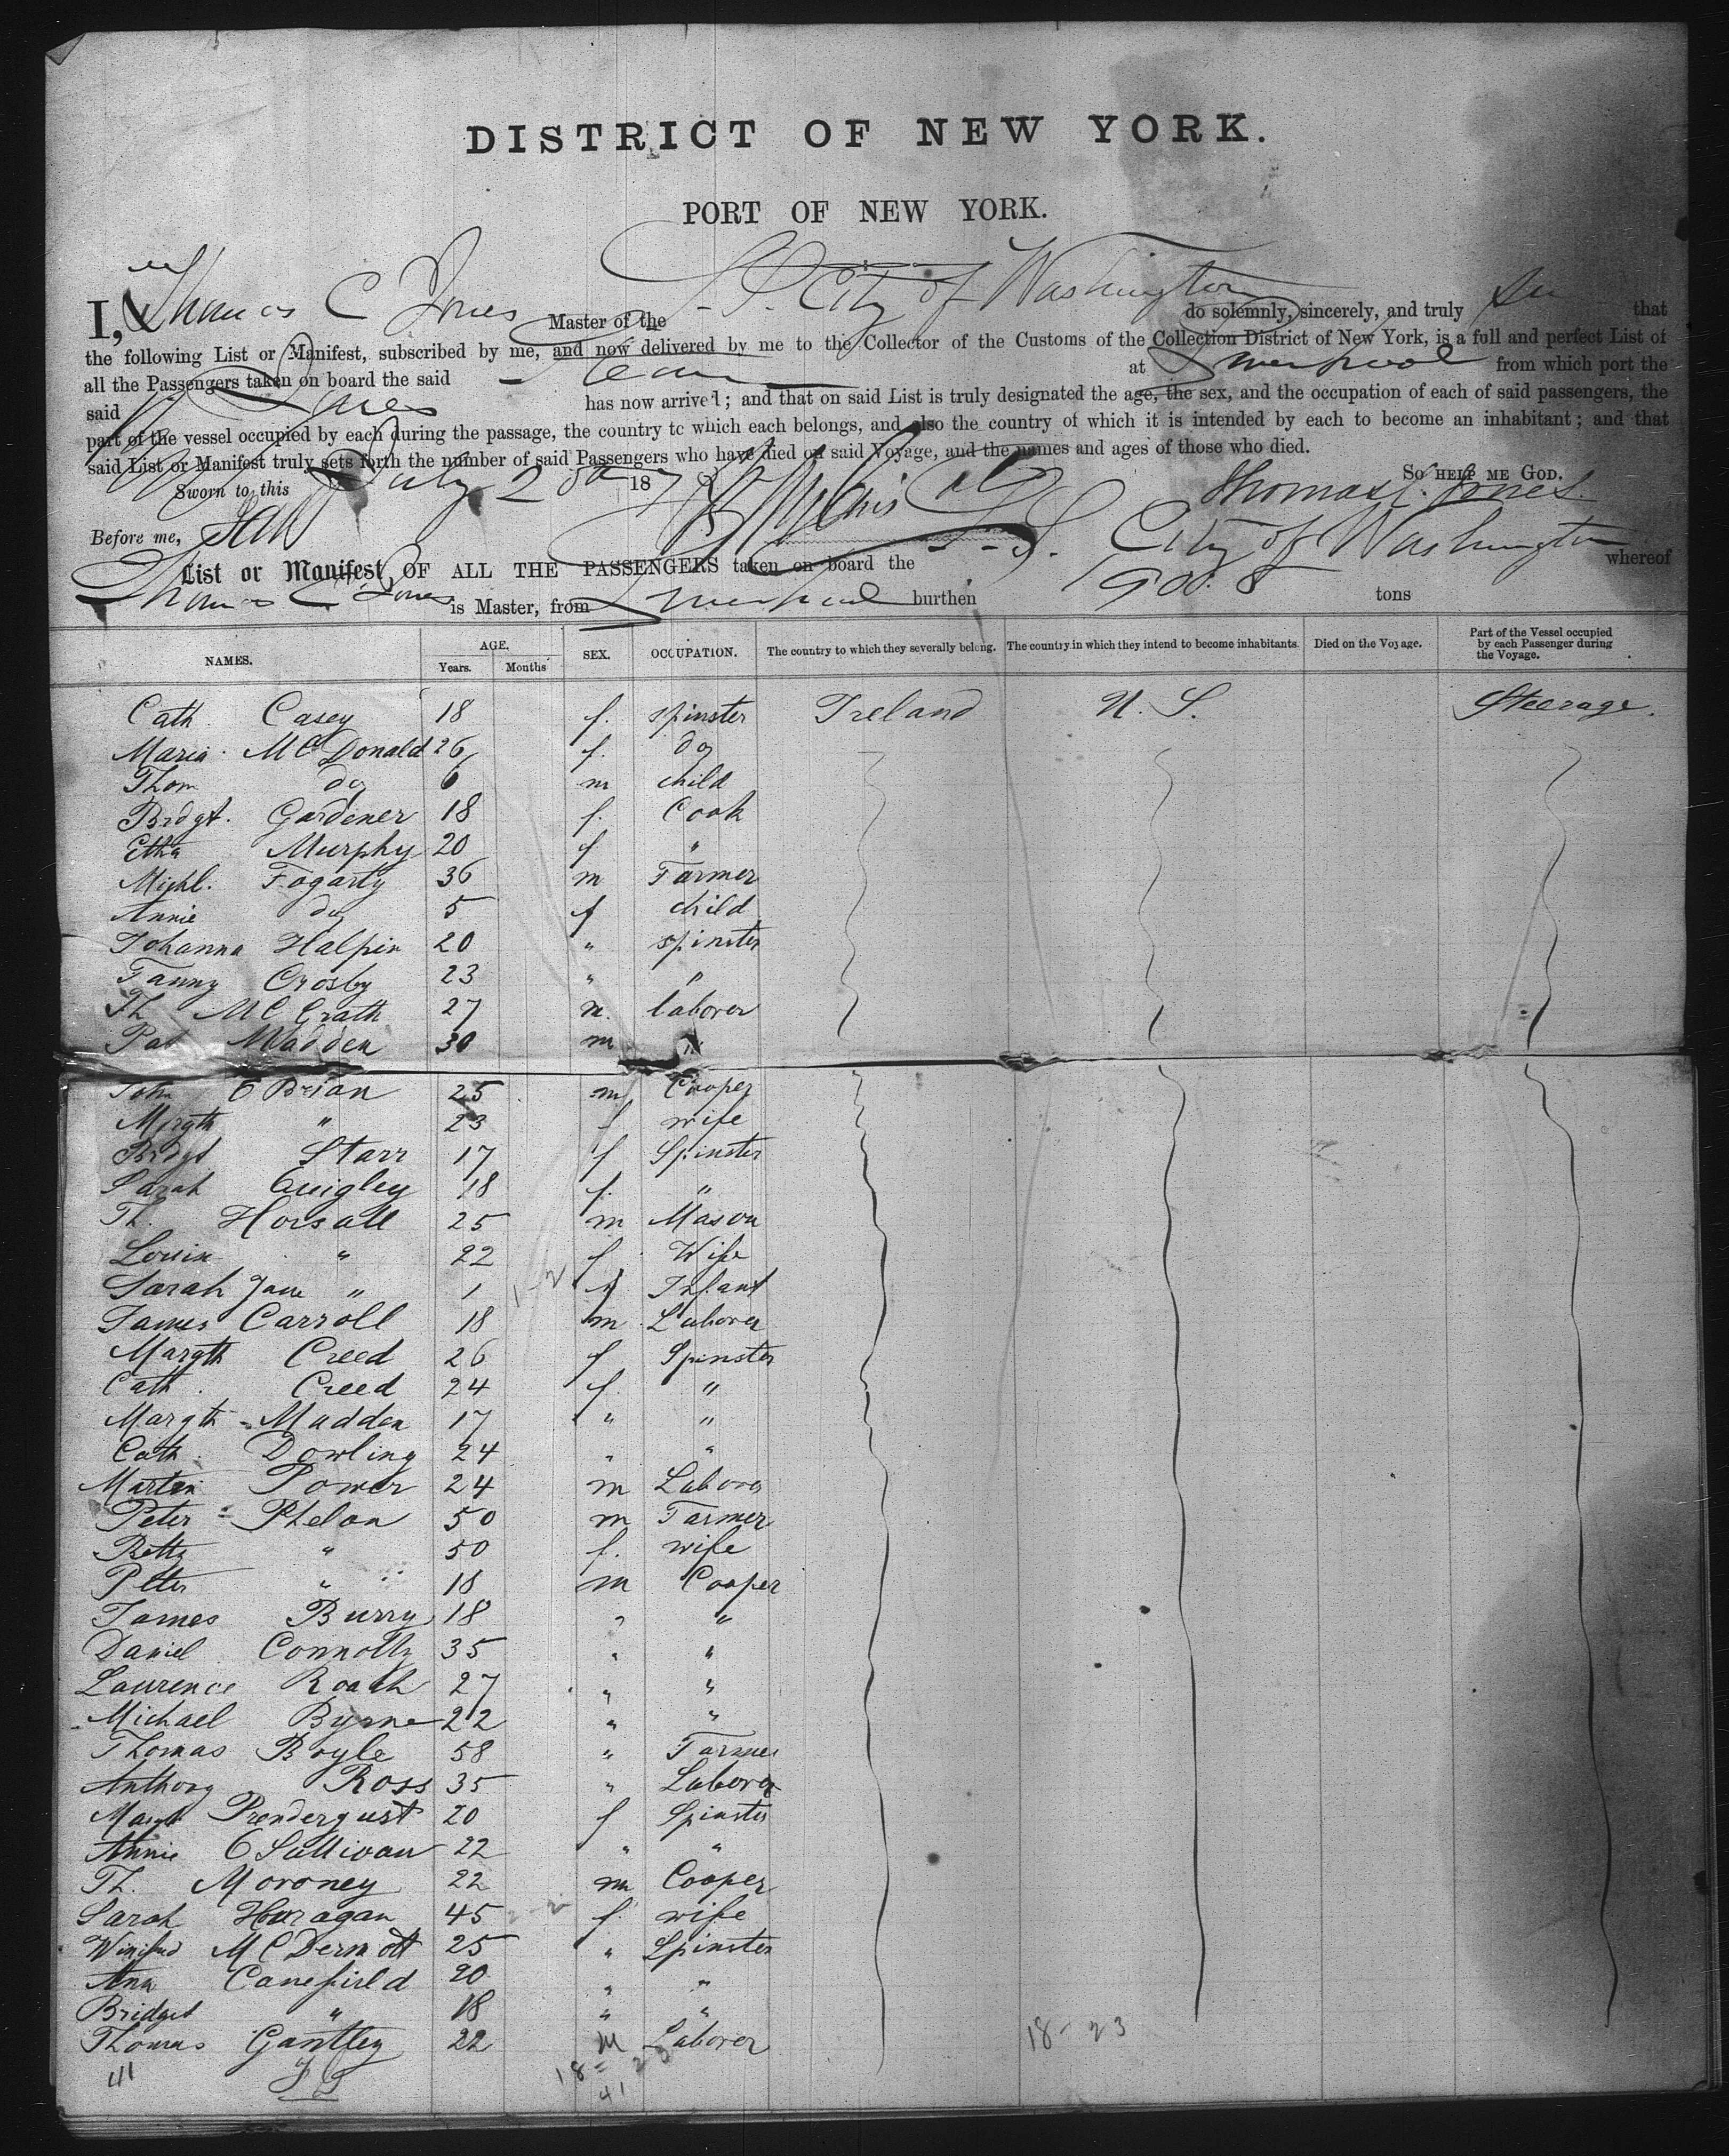 DISTRICT OF NEW YORK.
PORT OF NEW YORK.
I, Thomas C Jones Master of the S. S. City of Washington do solemnly, sincerely, and truly that
the following List or Manifest, subscribed by me, and now delivered by me to the Collector of the Customs of the Collection District of New York, is a full and perfect List of
all the Passengers taken on board the said Steamer at Liverpool from which port the
said has now arrived; and that on said List is truly designated the age, the sex, and the occupation of each of said passengers, the
part of the vessel occupied by each during the passage, the country to which each belongs, and also the country of which it is intended by each to become an inhabitant; and that
said List or Manifest truly sets forth the number of said Passengers who have died on said Voyage, and the names and ages of those who died.
So HELP ME GOD.
Sworn to this July 18 Thomas C. Jones
Before me,
List or Manifest OF ALL THE PASSENGERS taken on board the S. S. City of Washington whereof
Thomas C Jones is Master, from Liverpool burthen tons
NAMES. AGE. Years. Months SEX. OCCUPATION. The country to which they severally belong. The country in which they intend to become inhabitants. Died on the Voyage. Part of the Vessel occupied by each Passenger during the Voyage.
Cath Casey 18 f. spinster Ireland U. S. Steerage.
Maria McDonald 26 f. do
Thom do 6 m child
Brdgt. Gardener 18 f. Cook
Etha Murphy 20 f "
Michl. Fogarty 36 m Farmer
Annie do 5 f child
Johanna Halpin 20 " spinster
Fanny Crosby 23 " "
Th McGrath 27 m. laborer
Pat Madden 30 m "
John O Brian 25 m Cooper
Mrgth " 23 f wife
Brdgt Starr 17 f Spinster
Sarah Quigley 18 f. "
Th. Horsall 25 m Mason
Louin " 22 f Wife
Sarah Jane " 1 f Infant
James Carroll 18 m Laborer
Margth Creed 26 f Spinster
Cath. Creed 24 f. "
Margth Madden 17 " "
Cath Dowling 24 " "
Martin Power 24 m Laborer
Peter Phelan 50 m Farmer
Betty " 50 f. wife
Peter " 18 m Cooper
James Burry 18 " "
Daniel Connolly 35 " "
Laurence Roach 27 " "
Michael Byrne 22 " "
Thomas Boyle 58 " Farmer
Anthony Ross 35 " Laborer
Margt Prendergust 20 f Spinster
Annie O Sullivan 22 " "
Th. Moroney 22 m Cooper
Sarah Haragan 45 f. wife
Winifred McDermott 25 " Spinster
Ann Canefield 20 " "
Bridget " 18 " "
Thomas Gantley 22 M Laborer
41 18 = 23 18 - 23
41